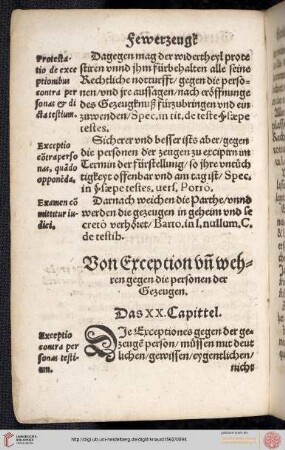 Fewerzeugk
Protesta-
tio de exce
ptionibus
contra per
sonas & di
cta testium.
Dagegen mag der widertheyl prote
stiren vnnd jhm fürbehalten alle seine
Rechtliche notturfft / gegen die perso-
nen / vnd jre aussagen / nach eröffnunge
des Gezeugknuß fürzubringen vnd ein
zuwenden / Spec. in tit. de teste §. sæpe
testes.
Exceptio
cõtra perso
nas, quãdo
opponẽda.
Sicherer vnd besser ists aber / gegen
die personen der zeugen zu excipirn im
Termin der fürstellung / so jhre vntüch
tigkeyt offenbar vnd am tag ist / Spec.
in §. sæpe testes, uers. Porrò.
Examen cõ
mittitur iu-
dici.
Darnach weichen die Parthe / vnnd
werden die gezeugen in geheim vnd se
cretò verhöret / Barto. in l. nullum. C.
de testib.
Von Exception vñ weh-
ren gegen die personen der
Gezeugen.
Das XX. Capittel.
Exceptio
contra per
sonas testi-
um.
DIe Exceptiones gegen der ge-
zeugẽ person / müssen mit deut
lichen / gewissen / eygentlichen /
nicht